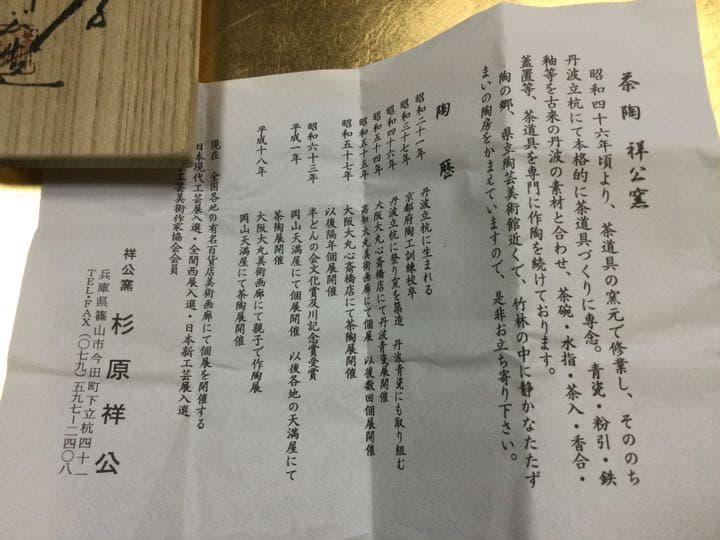 茶陶祥公窯
昭和四十六年頃より、茶道具の窯元で修業し、そののち
丹波立杭にて本格的に茶道具づくりに専念。青瓷・粉引・鉄
釉等を古来の丹波の素材と合わせ、茶碗・水指・茶入・香合・
蓋置等、茶道具を専門に作陶を続けております。
陶の郷、県立陶芸美術館近くで、竹林の中に静かなたたず
まいの陶房をかまえていますので、是非お立ち寄り下さい。
陶歴
昭和二十一年 丹波立杭に生まれる
昭和三十七年 京都府陶工訓練校卒
昭和四十六年 丹波立杭に登り窯を築造 丹波青瓷にも取り組む
昭和五十四年 大阪大丸心斎橋店にて丹波青瓷展開催
昭和五十五年 高知大丸美術画廊にて個展 以後数回個展開催
昭和五十七年 大阪大丸心斎橋店にて茶陶展開催
以後隔年個展開催
昭和六十三年 半どんの会文化賞及川記念賞受賞
平成一年 岡山天満屋にて個展開催 以後各地の天満屋にて
茶陶展開催
平成十八年 大阪大丸美術画廊にて親子で作陶展
岡山天満屋にて茶陶展開催
現在 全国各地の有名百貨店美術画廊にて個展を開催する
日本現代工芸展入選・全関西展入選・日本新工芸展入選
工芸美術作家協会会員
祥公窯 杉原祥公
兵庫県篠山市今田町下立杭四十一
TEL・FAX(〇七九)五九七ー二四〇八